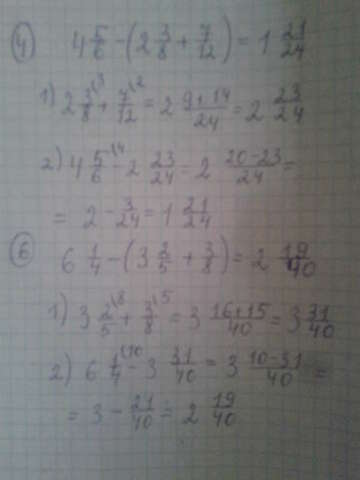 4) 4 5/6 - (2 3/8 + 7/12) = 1 21/24
1) 2 3/8 \3 + 7/12 \2 = 2 9+14/24 = 2 23/24
2) 4 5/6 \4 - 2 23/24 = 2 20-23/24 =
= 2 - 3/24 = 1 21/24
6) 6 1/4 - (3 2/5 + 3/8) = 2 19/40
1) 3 2/5 \8 + 3/8 \5 = 3 16+15/40 = 3 31/40
2) 6 1/4 \10 - 3 31/40 = 3 10-31/40 =
= 3 - 21/40 = 2 19/40